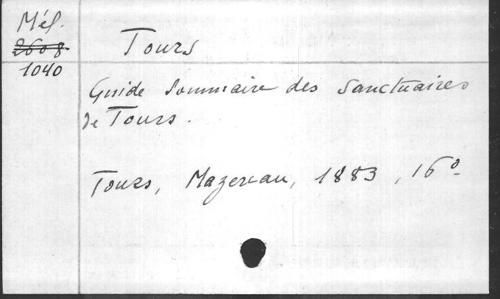 Mél.
2608
1040
Tours
Guide Sommaire des Sanctuaires
de Tours.
Tours, Mazereau, 1883, 16º